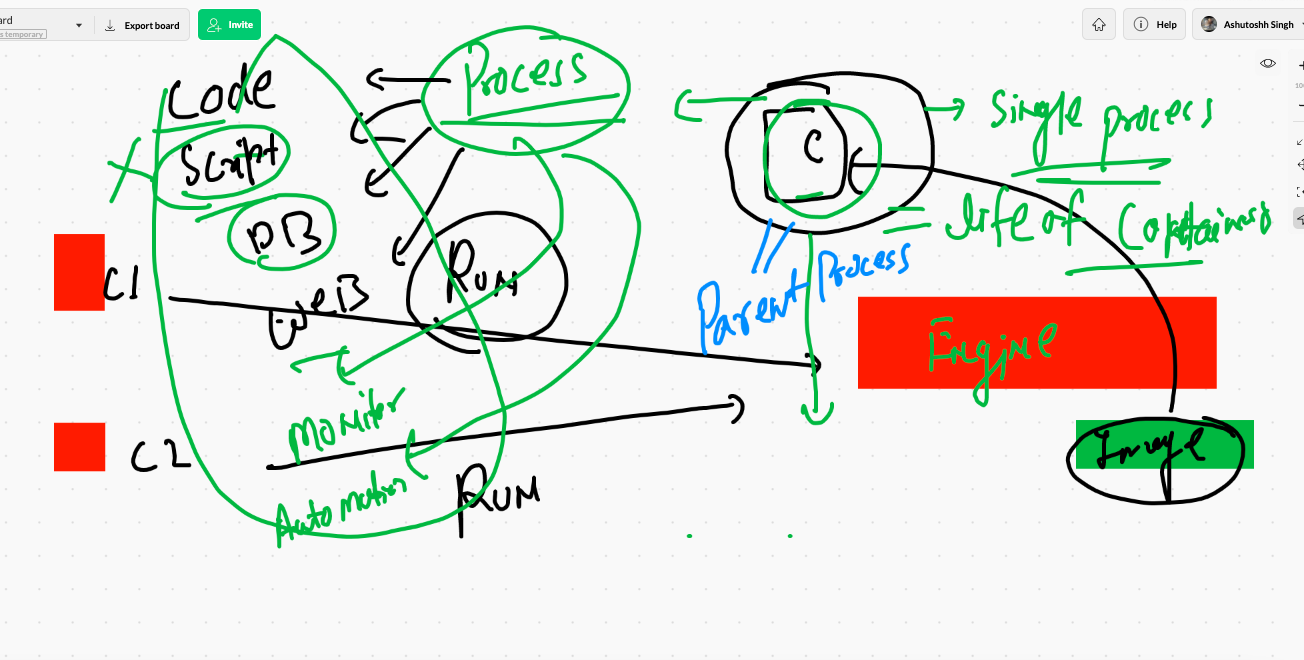 ard
s temporary
Export board
Invite
Help
Ashutoshh Singh
Code
Process
Script
DB
WeB
Run
C1
C2
Moniter
Automation
Run
C
Single process
life of Container
Parent Process
Engine
Image